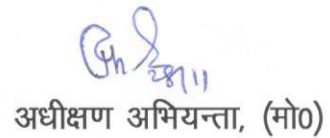 अधीक्षण अभियन्ता, (मो0)